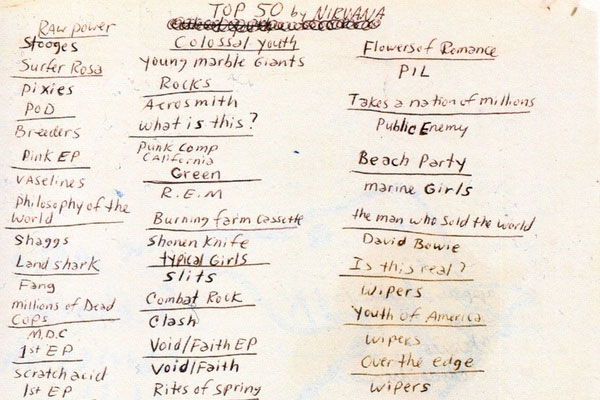 TOP 50 by NIRVANA
Raw power
Stooges
Surfer Rosa
Pixies
POD
Breeders
Pink EP
Vaselines
Philosophy of the
World
Shaggs
Land shark
Fang
millions of Dead
Cops
M.D.C
1st EP
Scratch acid
1st EP
Colossal Youth
Young marble Giants
Rocks
Aerosmith
What is this?
Punk Comp
California
Green
R.E.M
Burning farm Cassette
Shonen Knife
typical Girls
Slits
Combat Rock
Clash
Void/Faith EP
Void/Faith
Rites of Spring
Flowers of Romance
PIL
Takes a nation of millions
Public Enemy
Beach Party
marine Girls
the man who Sold the world
David Bowie
Is this real?
Wipers
Youth of America
Wipers
Over the edge
Wipers